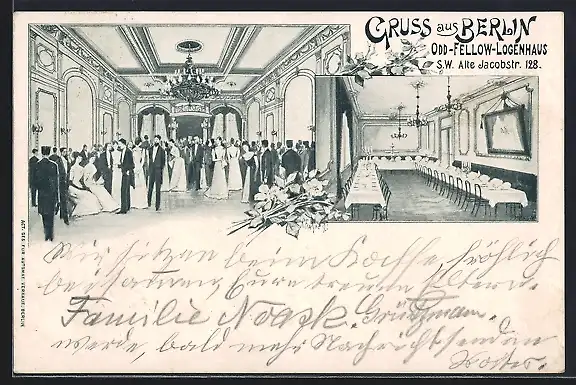 GRUSS aus BERLIN
ODD-FELLOW-LOGENHAUS
S.W. Alte Jacobstr. 128.
ACT.-GES. FÜR AUTOMAT. VERKAUF, BERLIN
Wir sitzen beim Kaffe, fröhlich
beisammen, Eure treuen Eltern.
Familie Noack.
werde, bald mehr Nachricht senden